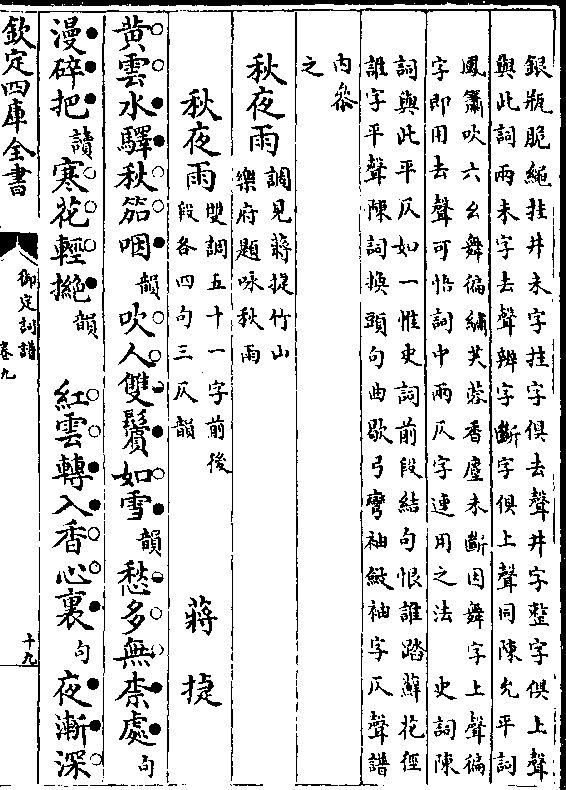 銀瓶脆繩挂井未字挂字俱去聲井字整字俱上聲
與此詞兩未字去聲辨字斷字俱上聲同陳允平詞
鳳簫吹六幺舞徧繡芙蓉香塵未斷因舞字上聲徧
字即用去聲可悟詞中兩仄字連用之法 史詞陳
詞與此平仄如一惟史詞前段結句恨誰踏蘚花徑
誰字平聲陳詞換頭句曲歇弓彎袖斂袖字仄聲譜
内叅
之
秋夜雨 調見蔣捷竹山
樂府題咏秋雨
秋夜雨 雙調五十一字前後
段各四句三仄韻 蔣捷
黄雲水驛秋笳咽韻吹人雙鬢如雪韻愁多無柰處句
漫碎把讀寒花輕撧韻 紅雲轉入香心裏句夜漸深
欽定四庫全書
御定詞譜
卷九
十九